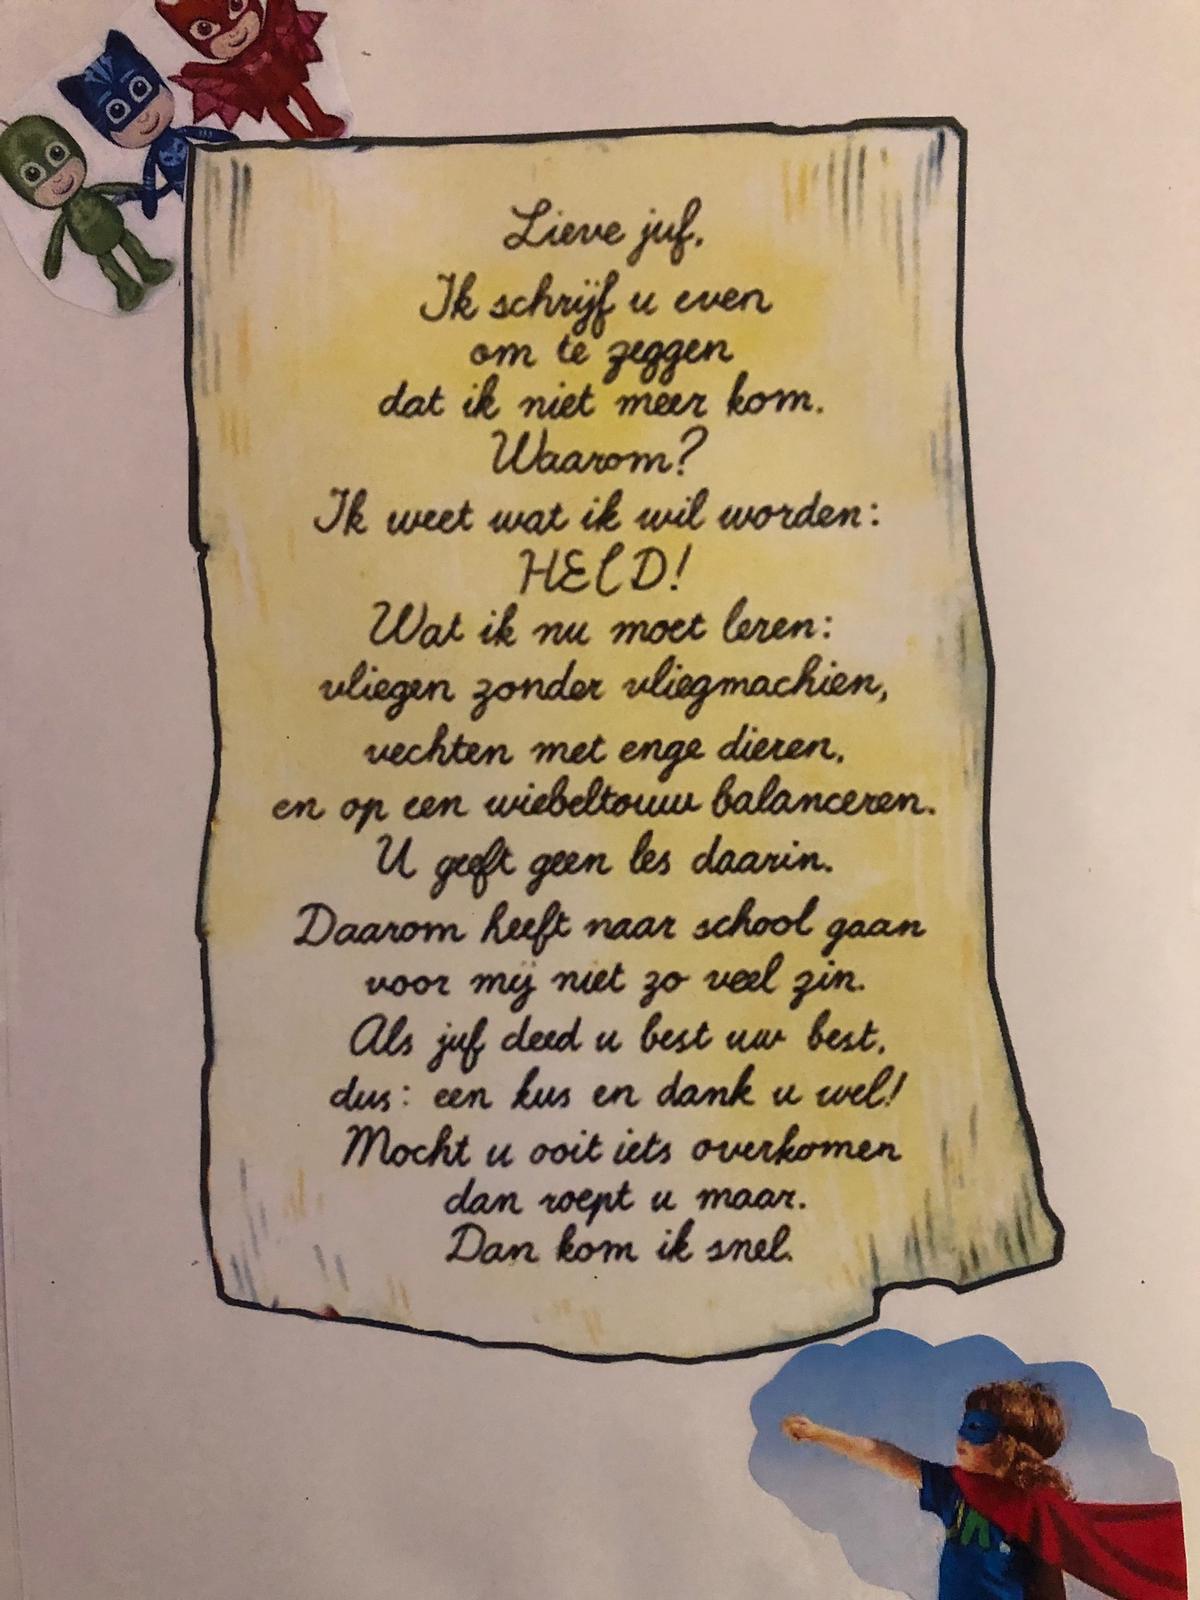 Lieve juf,
Ik schrijf u even
om te zeggen
dat ik niet meer kom.
Waarom?
Ik weet wat ik wil worden:
HELD!
Wat ik nu moet leren:
vliegen zonder vliegmachien,
vechten met enge dieren,
en op een wiebeltouw balanceren.
U geeft geen les daarin.
Daarom heeft naar school gaan
voor mij niet zo veel zin.
Als juf deed u best uw best,
dus: een kus en dank u wel!
Mocht u ooit iets overkomen
dan roept u maar.
Dan kom ik snel.